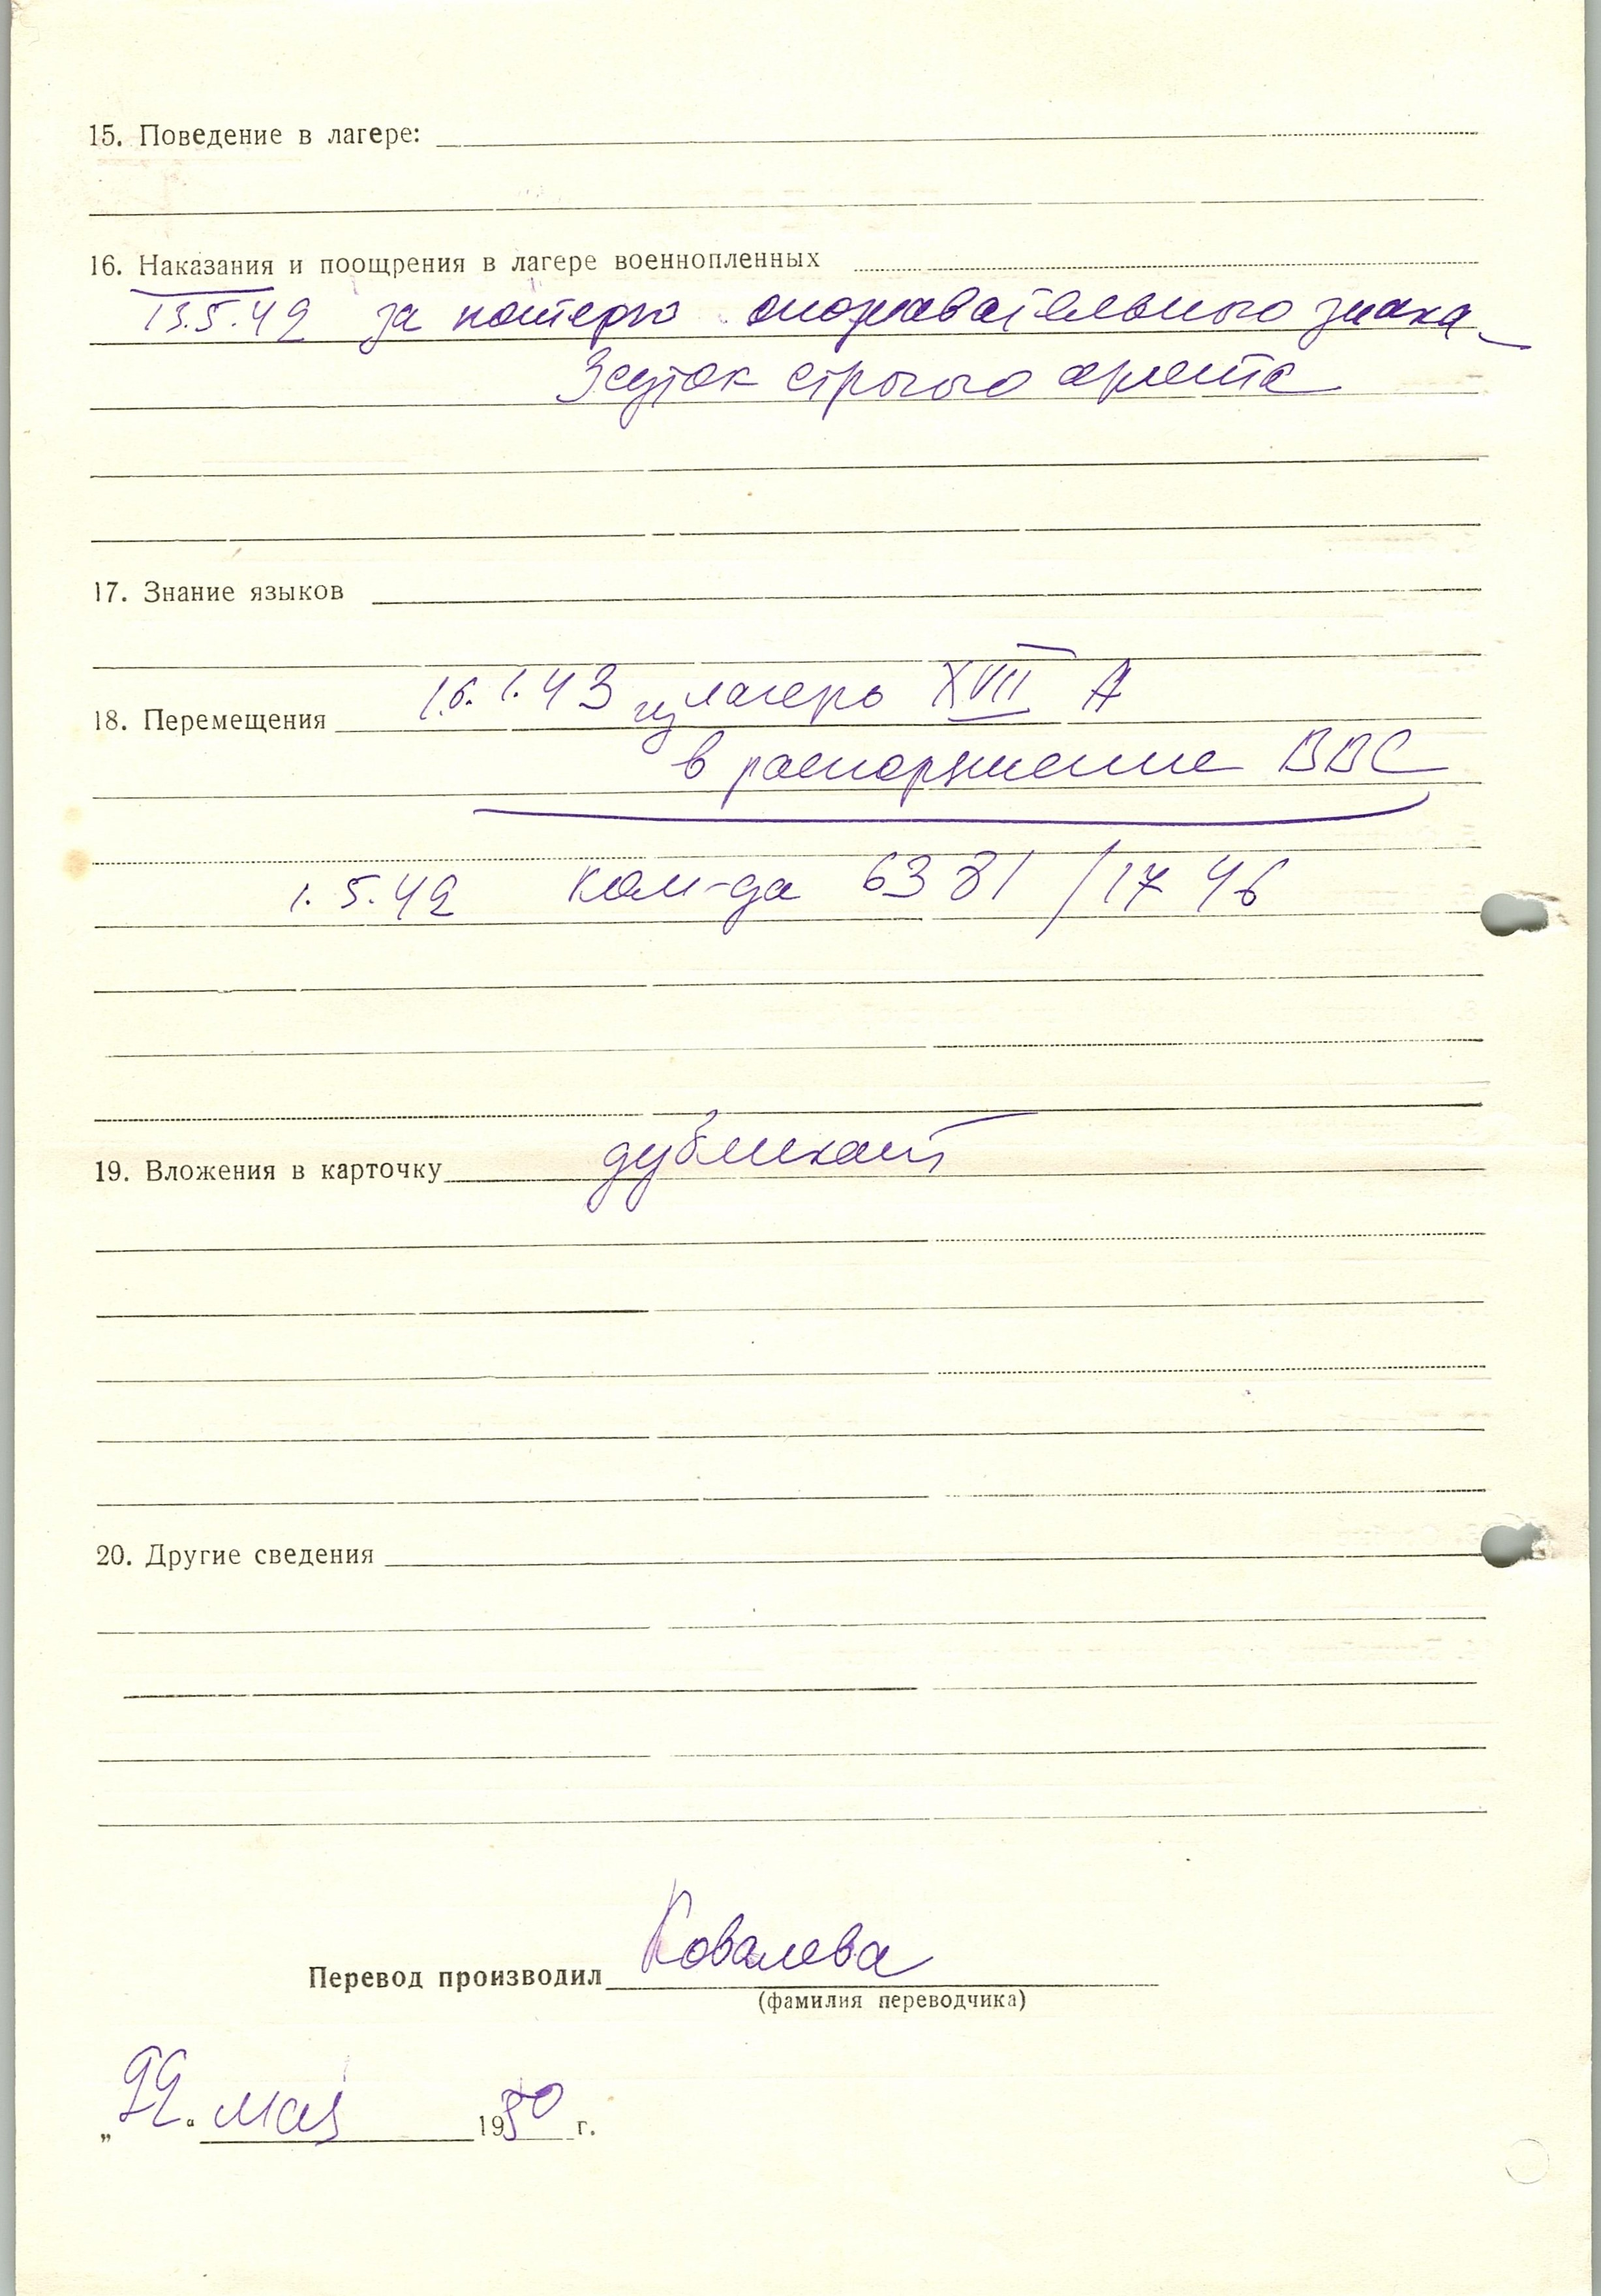 15. Поведение в лагере:
16. Наказания и поощрения в лагере военнопленных
13.5.42 за потерю опознавательного знака
3 суток строгого ареста
17. Знание языков
16.1.43 из лагеря XVII А
18. Перемещения
в распоряжение ВВС
1.5.42 ком-да 6381/1746
19. Вложения в карточку дубликат
20. Другие сведения
Перевод производил Ковалева
(фамилия переводчика)
„22" мая 1950 г.